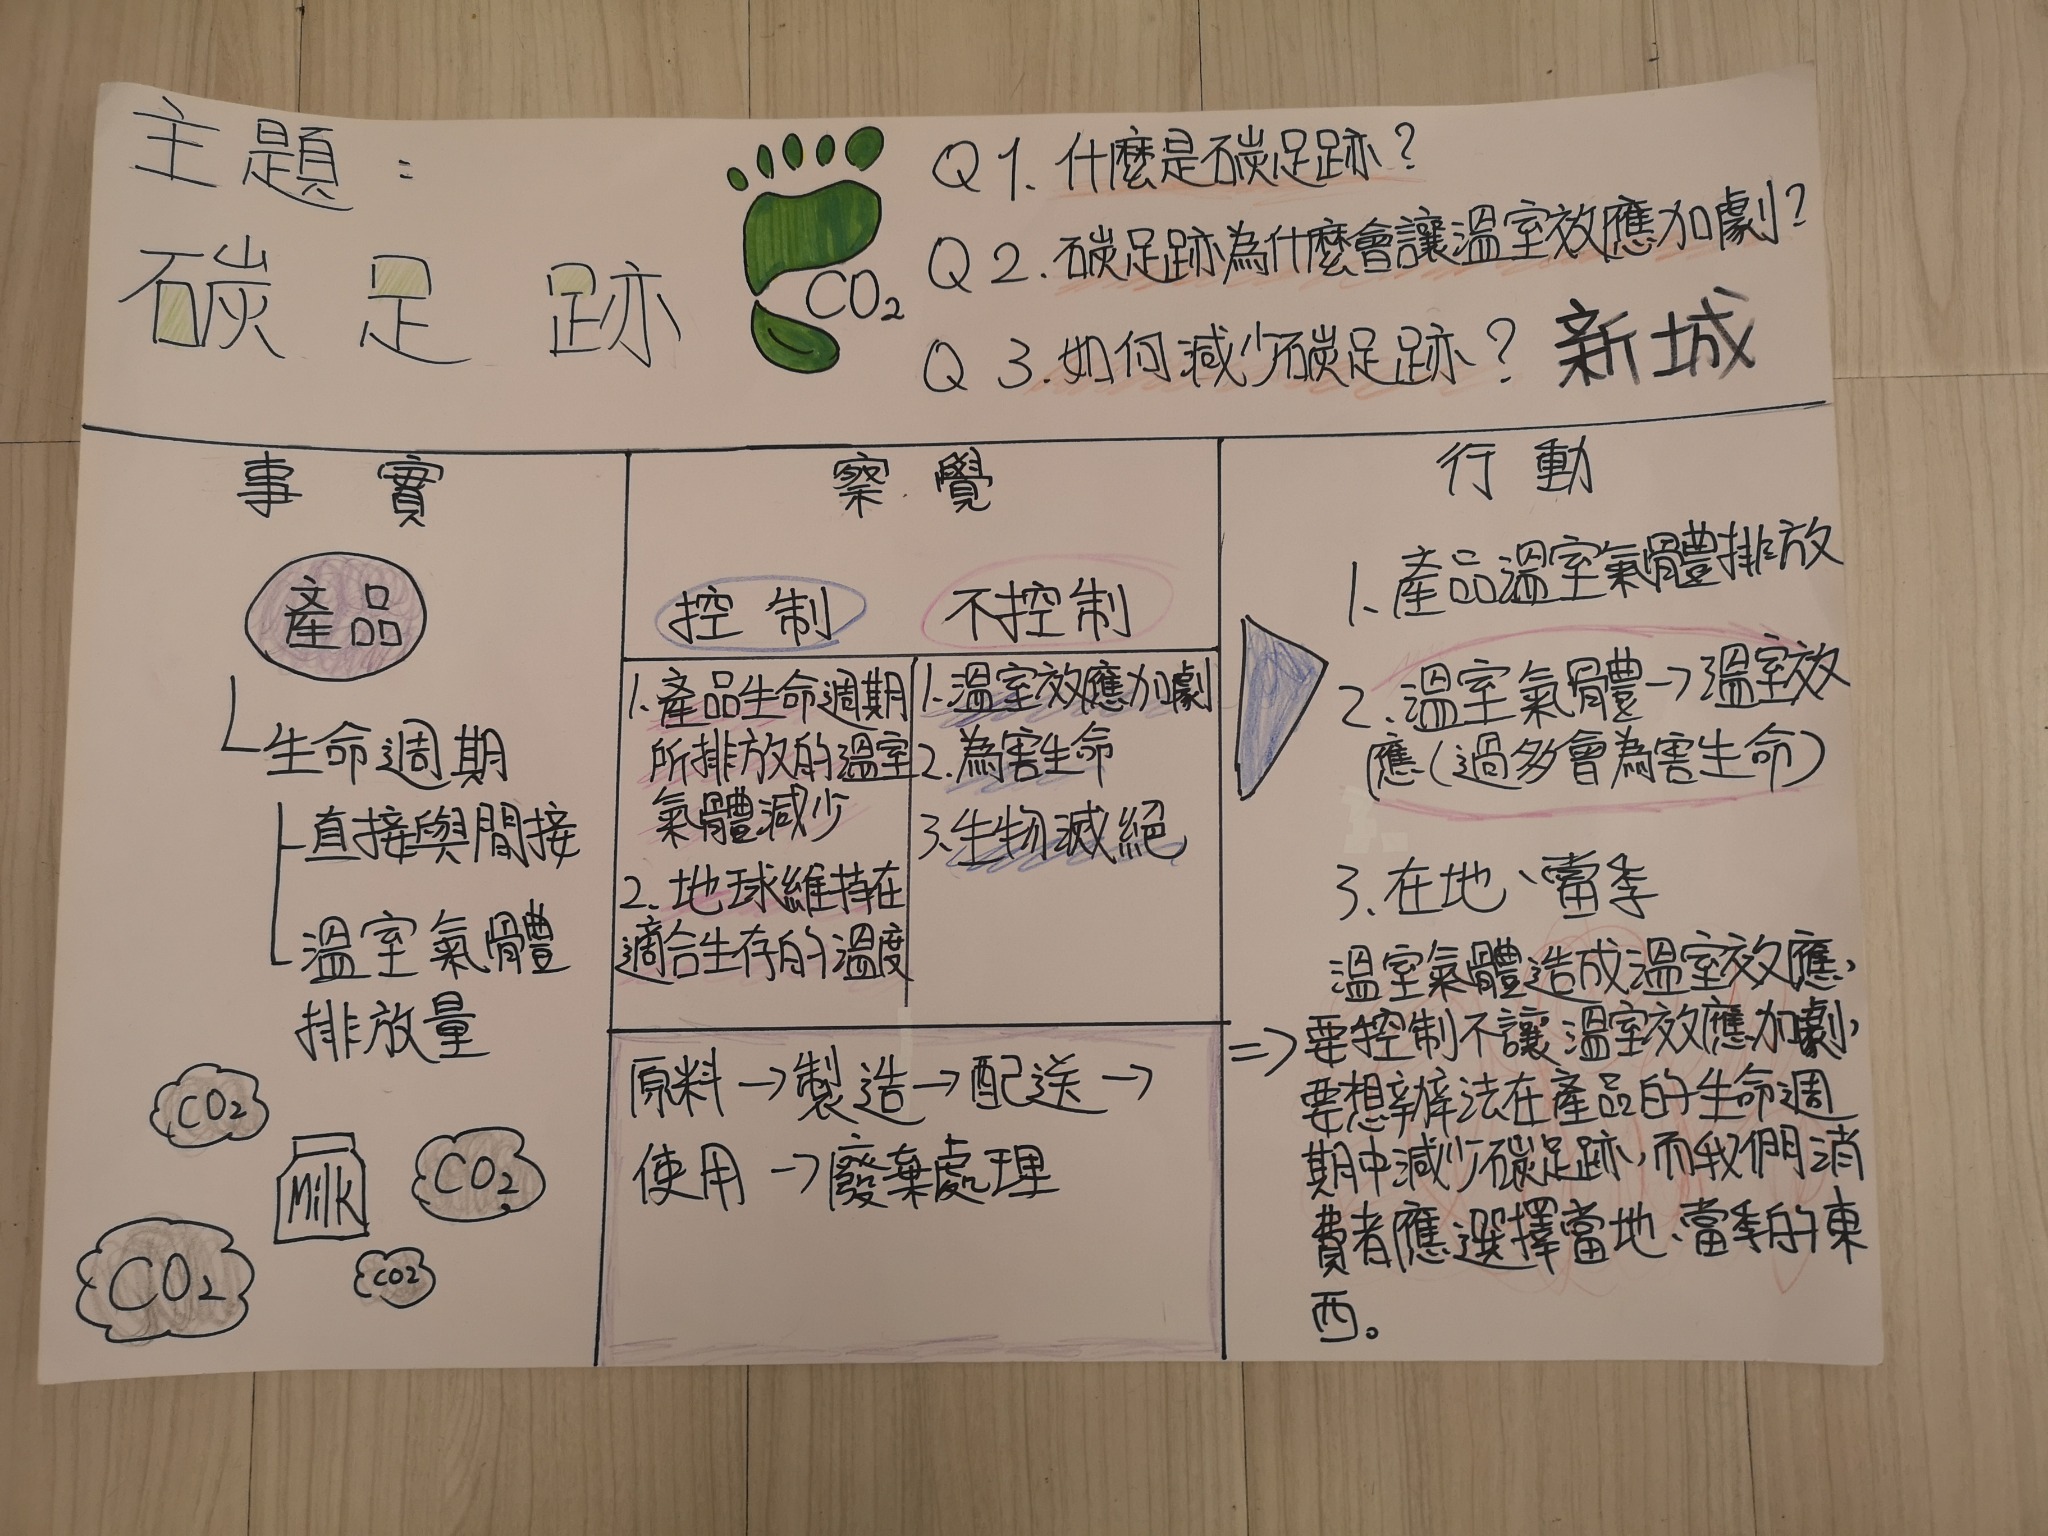 主題：
碳足跡
CO2
Q1. 什麼是碳足跡？
Q2. 碳足跡為什麼會讓溫室效應加劇？
Q3. 如何減少碳足跡？
新城
事實
產品
生命週期
直接與間接
溫室氣體
排放量
CO2
Milk
CO2
CO2
CO2
察覺
控制
1. 產品生命週期
所排放的溫室
氣體減少
2. 地球維持在
適合生存的溫度
不控制
1. 溫室效應加劇
2. 為害生命
3. 生物滅絕
原料→製造→配送→
使用→廢棄處理
行動
1. 產品溫室氣體排放
2. 溫室氣體→溫室效
應（過多會為害生命）
3. 在地、當季
溫室氣體造成溫室效應，
=>要控制不讓溫室效應加劇，
要想辦法在產品的生命週
期中減少碳足跡，而我們消
費者應選擇當地、當季的東
西。